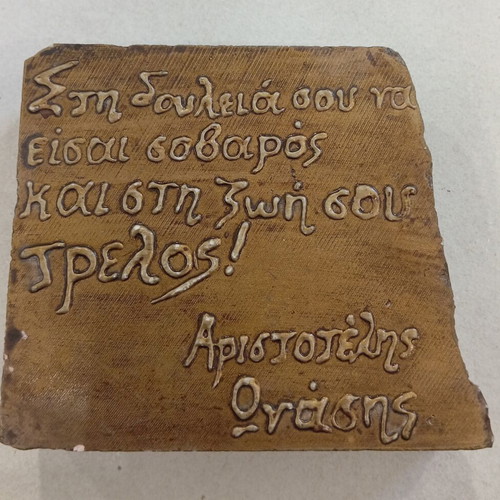 Στη δουλειά σου να
είσαι σοβαρός
και στη ζωή σου
τρελος!
Αριστοτέλης
Ωνάσης